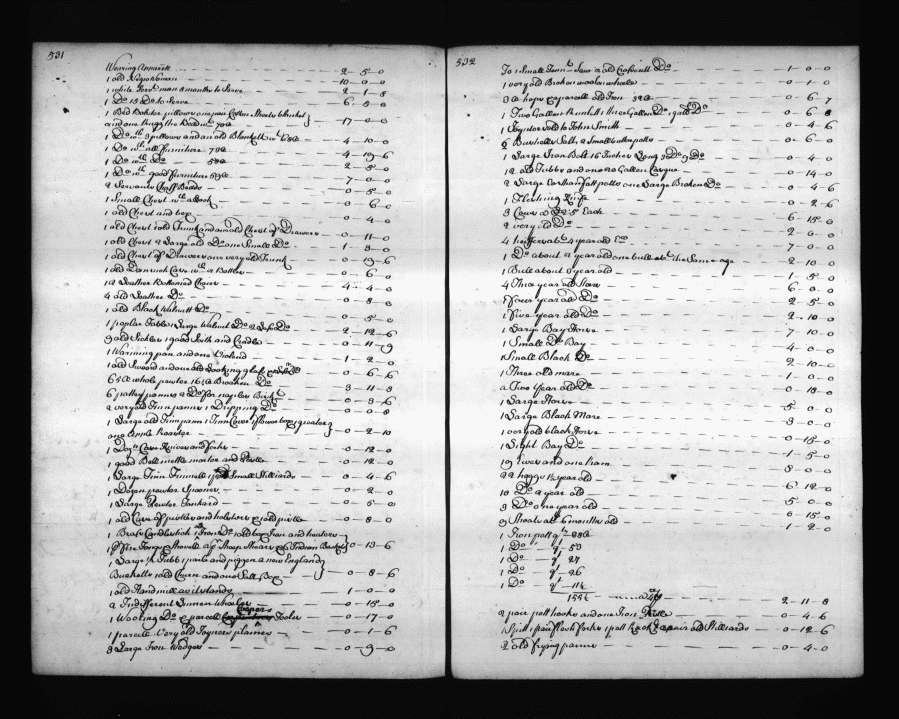 531
Wearing Apparell — 2-5-0
1 old Negro Woman — 10-0-0
1 white Serv^t man 8 months to Serve — 2-1-8
1 D^o 18 D^o to Serve — 6-5-0
1 Bed Bolster pillow one pair Cotton Sheets blanket
and one Rugg the Bed w^t 70 lb } — 17-0-0
1 D^o w^th 3 pillows and an old Blankett w^t 68 lb — 4-10-0
1 D^o w^th all furniture 78 lb — 4-19-6
1 D^o w^th D^o 58 lb — 2-5-0
1 D^o w^th good furniture 59 lb — 7-0-0
2 Servants Chaff Bedds — 0-5-0
1 Small Chest w^th a Lock — 0-6-0
1 old Chest and box — 0-4-0
1 old Chest 1 old Trunk and an old Chest of Drawers — 0-11-0
1 old Chest 2 Large old D^o one Small D^o — 1-8-0
1 old Chest of Drawers one very old Trunk — 0-19-6
1 old Case w^th 2 Bottles — 0-6-0
12 Leather Bottomed Chairs — 4-4-0
4 old Leather D^o — 0-8-0
1 old Black Walnutt D^o — 0-5-0
1 poplar Table 1 Large Walnut D^o 2 D^o — 2-12-6
3 old Sickles 1 good Scith and Cradle — 0-11-9
1 Warming pan and one — 1-2-0
1 old Sword and one old Looking glass — 0-6-6
65 lb whole pewter 16 lb Broken D^o — 3-11-8
6 patty panns 2 D^o for Naples Bisk^t — 0-3-6
2 very old Tinn panns 1 Dripping D^o — 0-0-8
1 Large old Tinn pann 1 Tinn Cover 1 flower box 1 greater
one Apple Roaster } — 0-2-10
1 Doz^n Case Knives and forks — 0-12-0
1 good Bell mettle mortar and Pestle — 0-12-0
1 Large Tinn Funnell 1 p^r Small Stilliards — 0-4-6
1 Dozen pewter Spoons — 0-2-0
1 Large Pewter Tankard — 0-5-0
1 old Case of pistles and holsters 2 old pistles — 0-8-0
1 Brass Candlestick 1 Iron D^o 1 old box Iron and heaters
1 p^r Fire Tongs & Shovell 2 p^r Sheep Shears 2 Indian Baskets } — 0-13-6
1 Large Tubb 1 pails and piggen 2 new England
Bucketts 1 old Churn and one Salt Box } — 0-8-6
1 old Hand mill as it stands — 1-0-0
2 Indifferent Linnen Wheeles — 0-15-0
1 Wooling D^o & parcell Coopers Tooles — 0-17-0
1 parcell Very old Joyners plaines — 0-1-6
3 Large Iron Wedges — 0-9-0
532
To 1 Small Tenn^t Saw 2 old Crosscutt D^o — 1-0-0
1 very old Broken woolen wheele — 1-0
3 old hoes parcell old Iron 32 lb — 0-6-7
1 Two Gallon Runlett 1 three Gallon D^o 1 2 Gall D^o — 0-6-8
1 Counter sold to John Smith — 0-4-6
2 Bushells Salt 2 Small butter potts — 0-6-0
1 Large Iron Bolt 16 Inches Long 3 D^o D^o — 0-4-0
12 old Tubbs and one 20 Gallon Casque — 0-14-0
2 Large Earthen fatt potts one Large Broken D^o — 0-4-6
1 Fleshing Knife — 0-2-6
3 Cows @ 45^s Each — 6-15-0
2 very old D^o — 2-6-0
4 heifers ab^t 4 years old — 7-0-0
1 D^o about 2 year old one bull ab^t the Same age — 2-10-0
1 Bull about 3 year old — 1-5-0
4 Three year old Steers — 6-0-0
1 four year old D^o — 2-5-0
1 five year old D^o — 2-10-0
1 Large Bay Horse — 7-10-0
1 Small D^o Bay — 4-0-0
1 Small Black D^o — 2-10-0
1 Three old mare — 1-0-0
a Two Year old D^o — 0-18-0
1 Large Horse — 5-0-0
1 Large Black Mare — 3-0-0
1 very old black Horse — 0-15-0
1 Light Bay D^o — 1-5-0
19 Ewes and one Ram — 8-0-0
22 hoggs 1½ year old — 6-12-0
10 D^o 2 year old — 5-0-0
9 D^o one year old — 6-15-0
9 Shoats ab^t 6 months old — 1-2-0
1 Iron pott q^t 28 lb
1 D^o — q^t 59
1 D^o — q^t 27
1 D^o — q^t 26
1 D^o — q^t 11½
155½ — 2-11-8
2 pair pott hooks and one Iron — 0-4-6
1 Spitt 1 pair flesh forks 1 pott Rack 2 pair old Stilliards — 0-12-6
2 old frying panns — 0-4-0